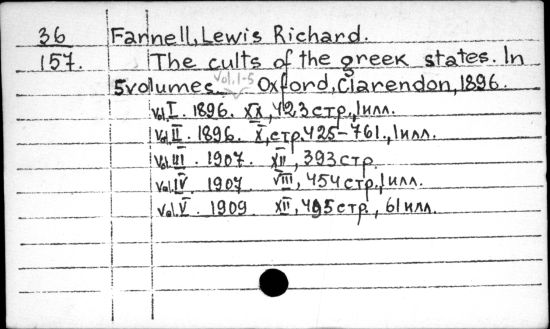 36 Farnell, Lewis Richard.
157. The cults of the greek states. In
5 volumes. Vol. 1-5 Oxford, Clarendon, 1896.
Vol. I. 1896. XX, 423 стр., 1 илл.
Vol. II. 1896. X, стр. 425-761., 1 илл.
Vol. III. 1907. XII, 393 стр.
Vol. IV. 1907. VIII, 454 стр., 1 илл.
Vol. V. 1909. XII, 495 стр., 61 илл.